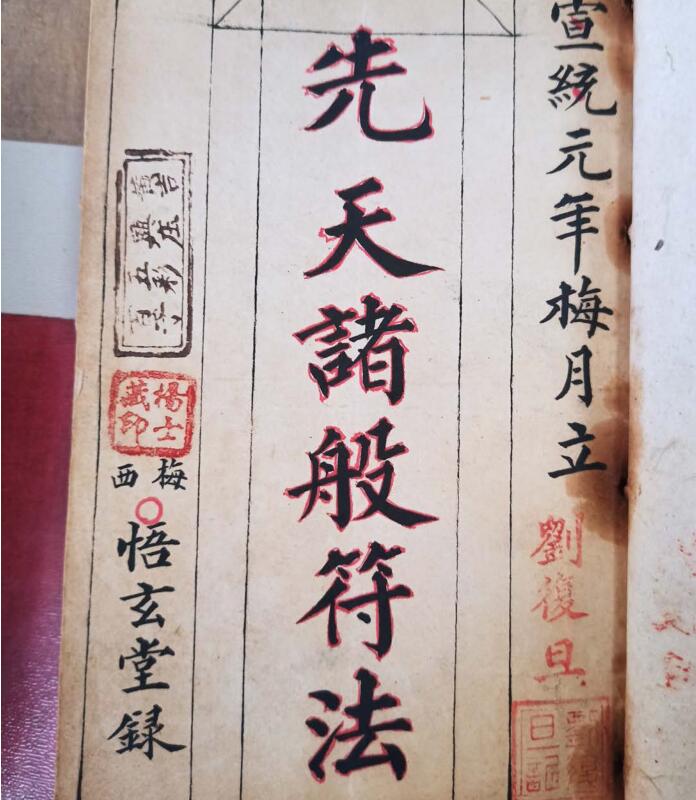 宣統元年梅月立
劉復旦
先天諸般符法
楊士
藏印
梅西
悟玄堂録